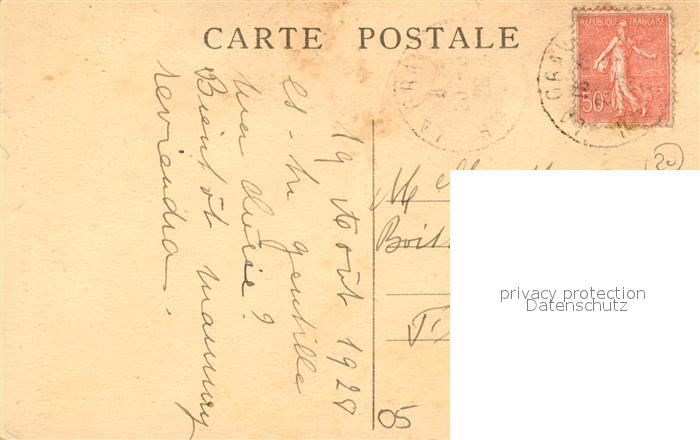 CARTE POSTALE
REPUBLIQUE FRANÇAISE
50c
19 Août 1928
Es-tu gentille
ma chérie?
Bientôt mammy
reviendra.
Melle
Boit
privacy protection
Datenschutz
20
05